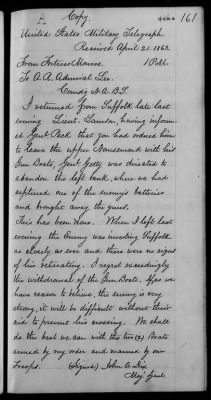 A Copy. 161
United States Military Telegraph.
Received April 21. 1863.
From Fortress Monroe. 1 P.M.
To A. R. Admiral Lee.
Comdg N.A.B.S.
I returned from Suffolk late last
evening. Lieut. Lamson, having inform-
ed Genl Peck that you had ordered him
to leave the upper Nansemond with his
Gun Boats, Genl Getty was directed to
abandon the left bank, when we had
captured one of the enemy's batteries
and brought away the guns.
This has been done. When I left last
evening the Enemy was investing Suffolk
as closely as ever and there were no signs
of his retreating. I regret exceedingly
the withdrawal of the Gun Boats. If as we
have reason to believe, the enemy is very
strong, it will be difficult without their
aid to prevent his crossing. We shall
do the best we can with the two (2) Boats
armed by my order and manned by our
Troops. (Signed) John A. Dix
Maj Genl.